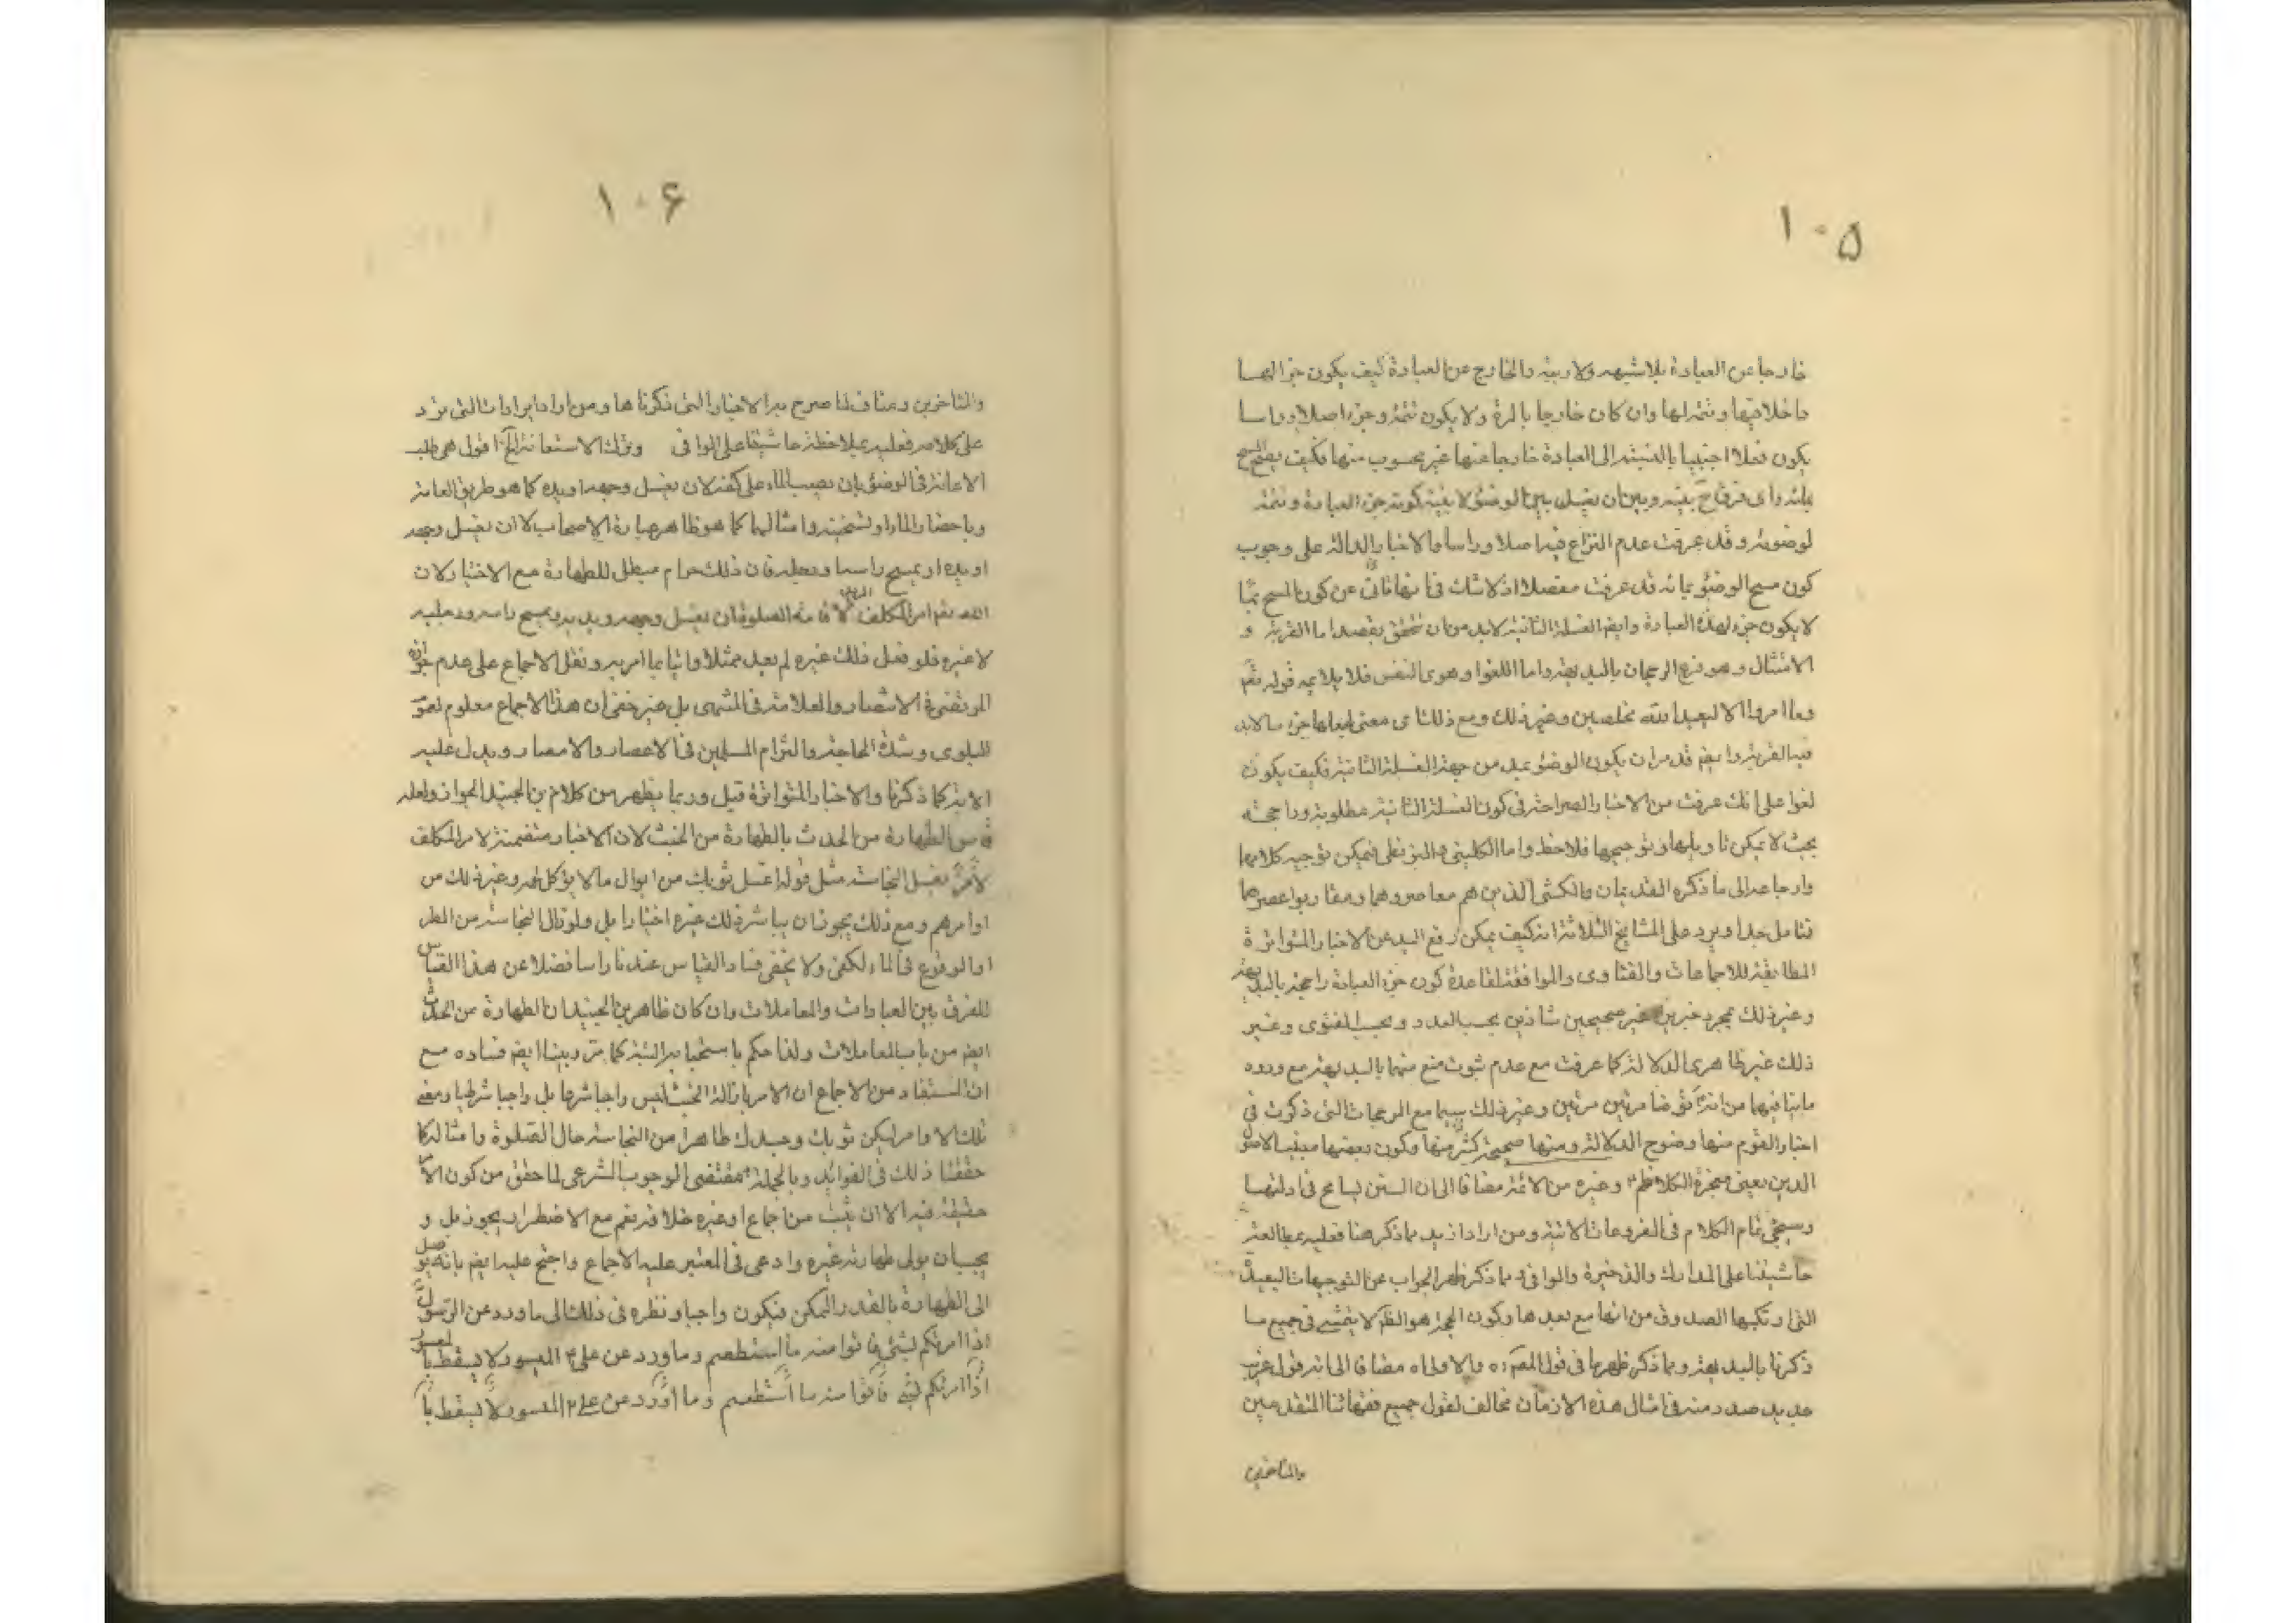 ١٠۵
خارجا عن العبادة بلا شبهه ولا ريبة والخارج عن العبادة كيف يكون جزء لها
داخلا فيها وتتمة لها وان كان خارجا بالمرة ولا يكون تتمة وجزء اصلا وراسا
يكون فعلا اجنبيا بالنسبة الى العبادة خارجا عنها غير محسوب منها فكيف يصح المسح
بمائه واى فرق ح بينه وبين ان يغسل بين الوضوء لا بنية كونه جزء العبادة وتتمة
لوضوئه وقد عرفت عدم النزاع فيه اصلا وراسا والاخبار الدالة على وجوب
كون مسح الوضوء بمائه قد عرفت مفصلا اذ لا شك فى انها تابى عن كون المسح بما
لا يكون جزء لهذه العبادة وايضم الغسلة الثانية لا بد من ان تتحقق بقصد اما القربة و
الامتثال وهو فرع الرجحان بالبديهة واما اللغو او هوى النفس فلا يلايمه قوله تعم
وما امروا الا ليعبدوا الله مخلصين وغير ذلك ومع ذلك اى معنى لجعلها جزء ما لا بد
فيه القربة وايضم قد مر ان يكون الوضوء عبد من جهة الغسلة الثانية فكيف يكون
لغوا على انك عرفت من الاخبار الصراحة فى كون الغسلة الثانية مطلوبة وراجحة
بحيث لا يمكن تاويلها وتوجيهها فلاحظ واما الكلينى والبزنطى فيمكن توجيه كلامهما
وارجاعه الى ما ذكره القديمان والكشى الذين هم معاصروهما ومقاربوا عصرهما
فتامل جدا ويرد على المشايخ الثلاثة انه كيف يمكن رفع اليد عن الاخبار المتواترة
المطابقة للاجماعات والفتاوى والموافقة لقاعدة كون جزء العبادة راجحة بالبديهة
وغير ذلك بمجرد خبرين غير صحيحين شاذين بحسب العدد وبحسب الفتوى وغير
ذلك غير ظاهرى الدلالة كما عرفت مع عدم ثبوت منع منهما بالبديهة مع ورود
ما ينافيها من انه توضا مرتين مرتين وغير ذلك سيما مع المرجحات التى ذكرت فى
اخبار القوم منها وضوح الدلالة ومنها صحيحة كثير منها وكون بعضها مبنيا لاصول
الدين يعنى معجزة الكاظم ع وغيره من الائمة مضافا الى ان السنن يسامح فى ادلتها
وسيجئ تمام الكلام فى الفروعات الاتية ومن اراد ازيد مما ذكر هنا فعليه بمطالعة
حاشيتنا على المدارك والذخيرة والوافى ومما ذكر ظهر الجواب عن التوجيهات البعيدة
التى ارتكبها الصدوق من انها مع بعدها وكون الحجة هو الظم لا يتمشى فى جميع ما
ذكرنا بالبديهة ومما ذكر ظهر ما فى قول المصم ره والاولى اه مضافا الى انه قول غريب
جديد صدر منه فى امثال هذه الازمان مخالف لقول جميع فقهائنا المتقدمين
والمتاخرين
١٠۶
والمتاخرين ومناف لما صرح به الاخبار التى ذكرناها ومن اراد ايرادات التى ترد
على كلامه فعليه بملاحظة حاشيتنا على الوافى وترك الاستعانة الخ اقول هى طلب
الاعانة فى الوضوء بان يصب الماء على كفه لان يغسل وجهه او يده كما هو طريق العامة
وباحضار الماء او تسخينه وامثالهما كما هو ظاهر عبارة الاصحاب لا ان يغسل وجهه
او يده او يمسح راسه ورجليه فان ذلك حرام مبطل للطهارة مع الاختيار لان
الله تعم امر المكلف لاقامة الصلوة ان يغسل وجهه ويديه ويمسح راسه ورجليه
لا غيره فلو فعل ذلك غيره لم يعد ممتثلا واتيا بما امر به ونقل الاجماع على عدم جوازه
المرتضى فى الانتصار والعلامة فى المنتهى بل غير خفى ان هذا الاجماع معلوم لعموم
البلوى وشدة الحاجة والتزام المسلمين فى الاعصار والامصار ويدل عليه
الاية كما ذكرنا والاخبار المتواترة قيل وربما يظهر من كلام بن الجنيد الجواز ولعله
قاس الطهارة من الحدث بالطهارة من الخبث لان الاخبار متضمنة لامر المكلف
لامرء بغسل النجاسة مثل قوله اغسل ثوبك من ابوال ما لا يؤكل لحمه وغير ذلك من
اوامرهم ومع ذلك يجوز ان يباشر ذلك غيره اختيارا بل ولو زال النجاسة من المطر
او الوقوع فى الماء لكفى ولا يخفى فساد القياس عندنا راسا فضلا عن هذا القياس
للفرق بين العبادات والمعاملات وان كان ظاهر بن الجنيد ان الطهارة من الحدث
ايضم من باب المعاملات ولذا حكم باستحباب النية كما مر وبينا ايضم فساده مع
ان المستفاد من الاجماع ان الامر بازالة الخبث ليس واجبا شرعا بل واجبا شرطيا ومعنى
تلك الاوامر ليكن ثوبك وجسدك طاهرا من النجاسة حال الصلوة وامثاله كما
حققنا ذلك فى الفوائد وبالجملة مقتضى الوجوب الشرعى لما حقق من كون الامر
حقيقة فيه الا ان يثبت من اجماع او غيره خلافه نعم مع الاضطرار يجوز بل و
يجب ان يولى طهارته غيره وادعى فى المعتبر عليه الاجماع واحتج عليه ايضم بانه توصل
الى الطهارة بالقدر الممكن فيكون واجبا ونظره فى ذلك الى ما ورد عن الرسول
اذا امرتكم بشئ فاتوا منه ما استطعتم وما ورد عن على ع الميسور لا يسقط بالمعسور
اذا امرتكم بشئ فاتوا منه ما استطعتم وما ورد عن على ع الميسور لا يسقط با